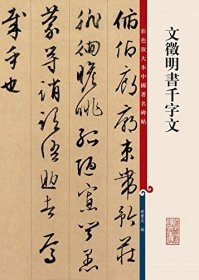 彩色放大本中國著名碑帖
文徵明書千字文
孫寶文 編
俯仰廊廟束帶矜莊
徘徊瞻眺孤陋寡聞愚
蒙等誚謂語助者焉
哉乎也